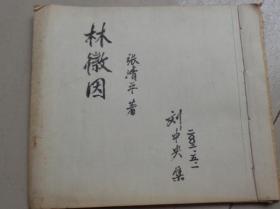 林徽因
张清平 著
刘中央 集
二〇〇五.五.一